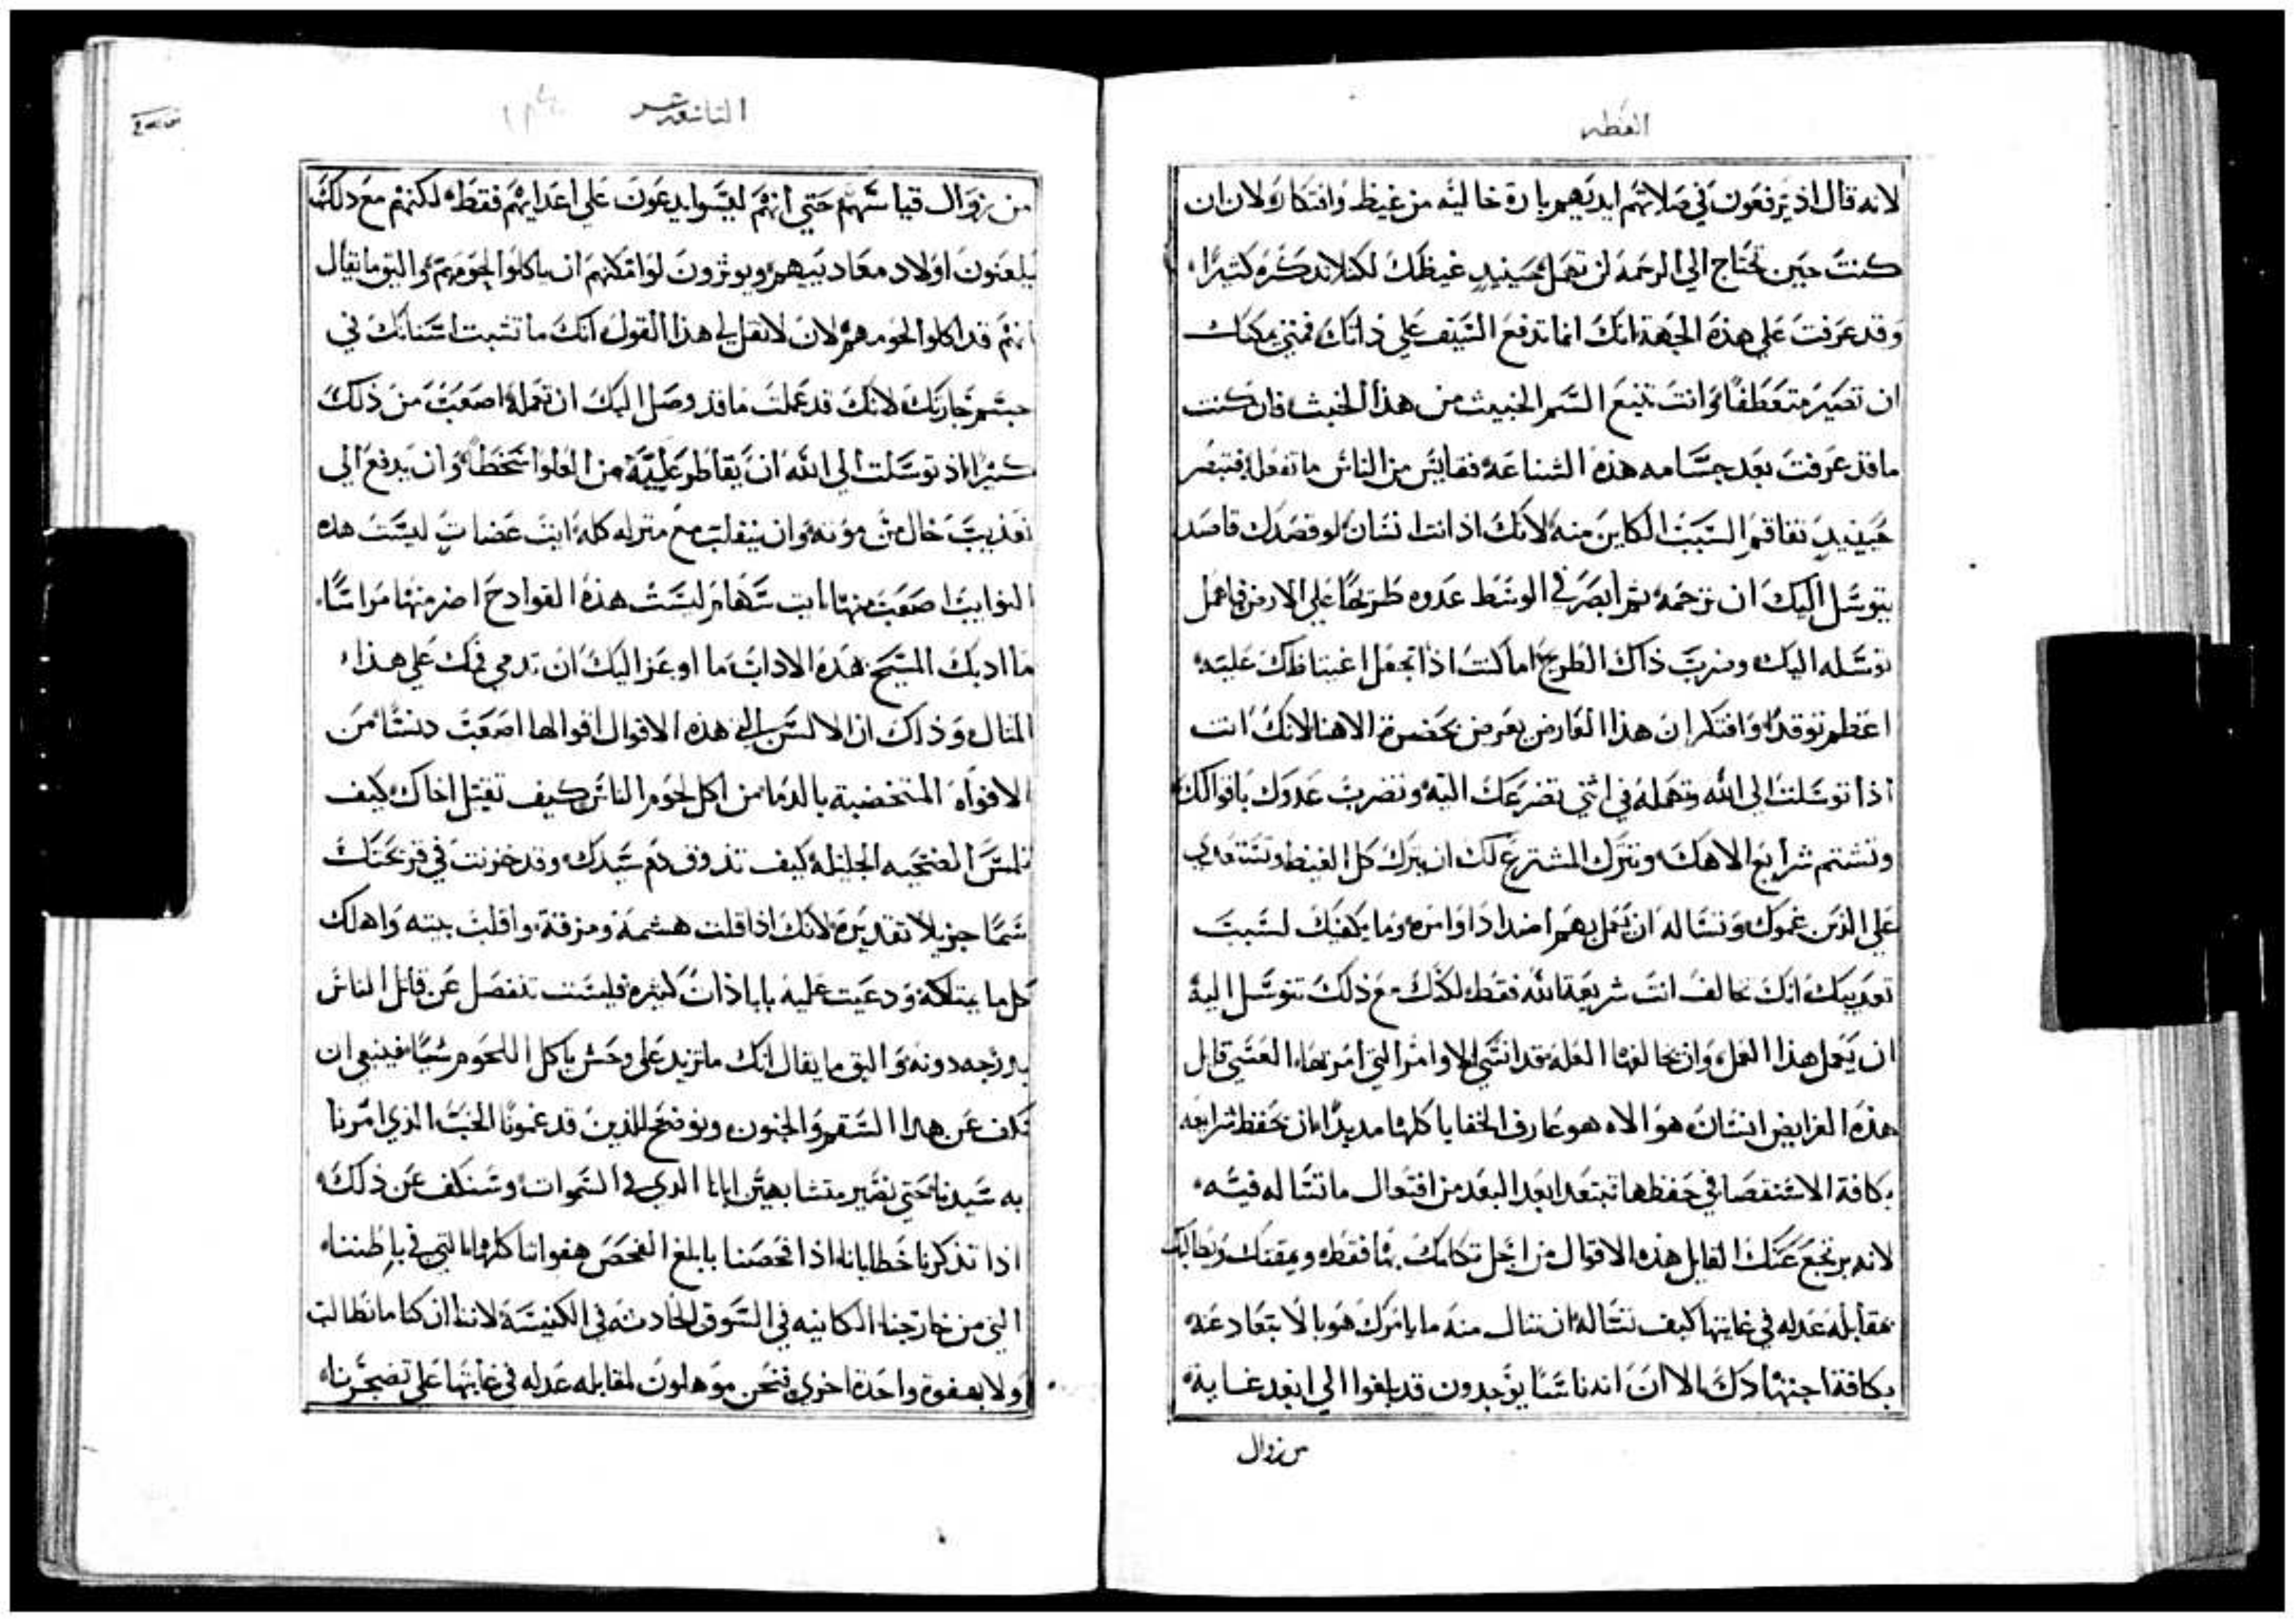 العظه
لانه قال اذ يرفعون في صلاتهم ايديهم بارة خالية من غيظ وافتكار ولان ان
كنت حين تحتاج الي الرحمة لن تهمل حينيد غيظك لكنك تذكره كثيرا
وقد عرفت علي هذه الجهة انك انما تدفع السيف علي ذاتك فمتي يمكنك
ان تصير متعطفا وانت تنبع السم الخبيث من هذا الخبث فان كنت
ما قد عرفت بعد جسامه هذه الشناعة فقايس من الناس ما تفعله فتبصر
حينيد تفاقم السبب الكاين منه لانك اذ انت انسان لو قصدك قاصد
يتوسل اليك ان ترحمه ثم ابصر في الوسط عدوه طريحا علي الارض فاهمل
توسله اليك وضرب ذاك الطريح اما كنت اذا تجعل اغتياظك عليه
اعظم توقدا وافتكر ان هذا العارض يعرض بحضرة الاهنا لانك انت
اذا توسلت الي الله وتهمله في اثني تضرعك اليه وتضرب عدوك باقوالك
وتشتم شرايع الاهك وتترك المشترع لك ان تترك كل الغيظ وتستعدي
علي الذين غموك وتساله ان يعمل بهم اضداد اوامره وما يكفيك لسبب
تعذيبك انك تخالف انت شريعة الله فقط لكنك مع ذلك تتوسل اليه
ان يعمل هذا العمل وان يخالفها العله قد انسي الاوامر التي امر بها العسي قايل
هذه الفرايض انسان هو الاه هو عارف الخفايا كلها مديدا ان تحفظ شرايعه
بكافة الاستقصا في حفظها تبتعد ابعد البعد من افتعال ما تساله فيه
لانه يرتجع عنك القايل هذه الاقوال من اجل تكلمك بها فقط ويمقتك ويطالبك
بمقابله عدله في غايتها كيف تساله ان تنال منه ما يامرك هو بالابتعاد عنه
بكافة اجتهادك الا ان اناسا يوجدون قد بلغوا الي ابعد غاية
من زوال
التاسعه عشر
من زوال قياسهم حتي انهم ليسوا يدعون علي اعدايهم فقط لكنهم مع ذلك
يلعنون اولاد معاديبهم ويوثرون لو امكنهم ان ياكلوا لحومهم واليق ما يقال
انهم قد اكلوا لحومهم لان لا تقل لي هذا القول انك ما تشبت اسنانك في
جسم جارتك لانك قد عملت ما قد وصل اليك ان تعمله اصعب من ذلك
كثيرا اذ توسلت الي الله ان يقاطر عليه من العلو اسخطا وان يدفع الي
تعذيب خال من موته وان ينقلب مع منزله كله ايت عضات ليست هذه
النوايب اصعب منها ايت سهام ليست هذه القوادح اضر منها مراسا
ما ادبك المسيح هذه الاداب ما اوعز اليك ان تدمي فمك علي هذا
المثال وذاك ان الالسن هذه الاقوال اقوالها اصعب دنسا من
الافواه المتخضبة بالدما من اكل لحوم الناس كيف تقبل اخاك كيف
تلمس الضحيه الجليلة كيف تذوق دم سيدك وقد خزنت في قريحتك
سما جزيلا تقديره لانك اذا قلت هشمه ومزقه واقلب بيته واهلك
كل ما يمتلكه ودعيت عليه بابادات كثيره فليست تنفصل عن قاتل الناس
بل درجه دونه واليق ما يقال انك ما تزيد علي وحش ياكل اللحوم شيا فينبغي ان
نكف عن هذا السقم والجنون ونوضح للذين قد غمونا الحب الذي امرنا
به سيدنا حتي نصير متشابهين ابانا الذي في السموات وسنكف عن ذلك
اذا تذكرنا خطايانا اذا فحصنا بابلغ الفحص هفواتنا كلها التي في باطننا
التي من خارجنا الكاينه في السوق الحادثه في الكنيسة لاننا ان كنا ما نطالب
ولا بهفوة واحدة اخري فنحن موهلون لمقابله عدله في غايتها علي تضجرنا